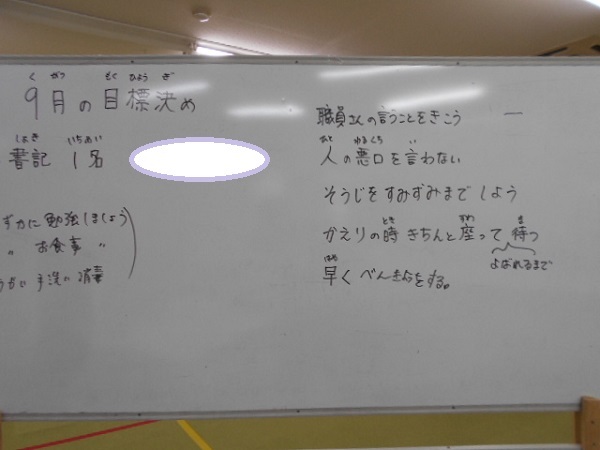 くがつ もくひょうぎ
9月の目標決め
しょき いちめい
書記 1名
ずかに勉強しましょう
〃 お食事 〃
うがい 手洗い 消毒
職員さんの言うことをきこう 一
ひと わるくち い
人の悪口を言わない
そうじをすみずみまでしよう
とき すわ ま
かえりの時きちんと座って待つ
よばれるまで
はや
早くべんきょうをする。